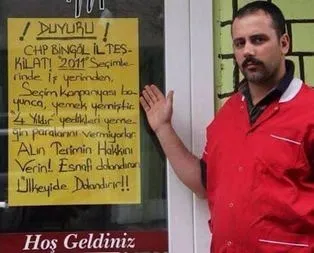 ! DUYURU !
CHP BİNGÖL İL TEŞ-
KİLATI "2011" Seçimle-
rinde İş yerimden,
Seçim Kampanyası bo-
yunca, yemek yemiştir.
"4 Yıldır" yedikleri yeme-
ğin paralarını Vermiyorlar
Alın Terimin Hakkını
Verin! Esnafı dolandıran
Ülkeyide Dolandırır!!
Hoş Geldiniz